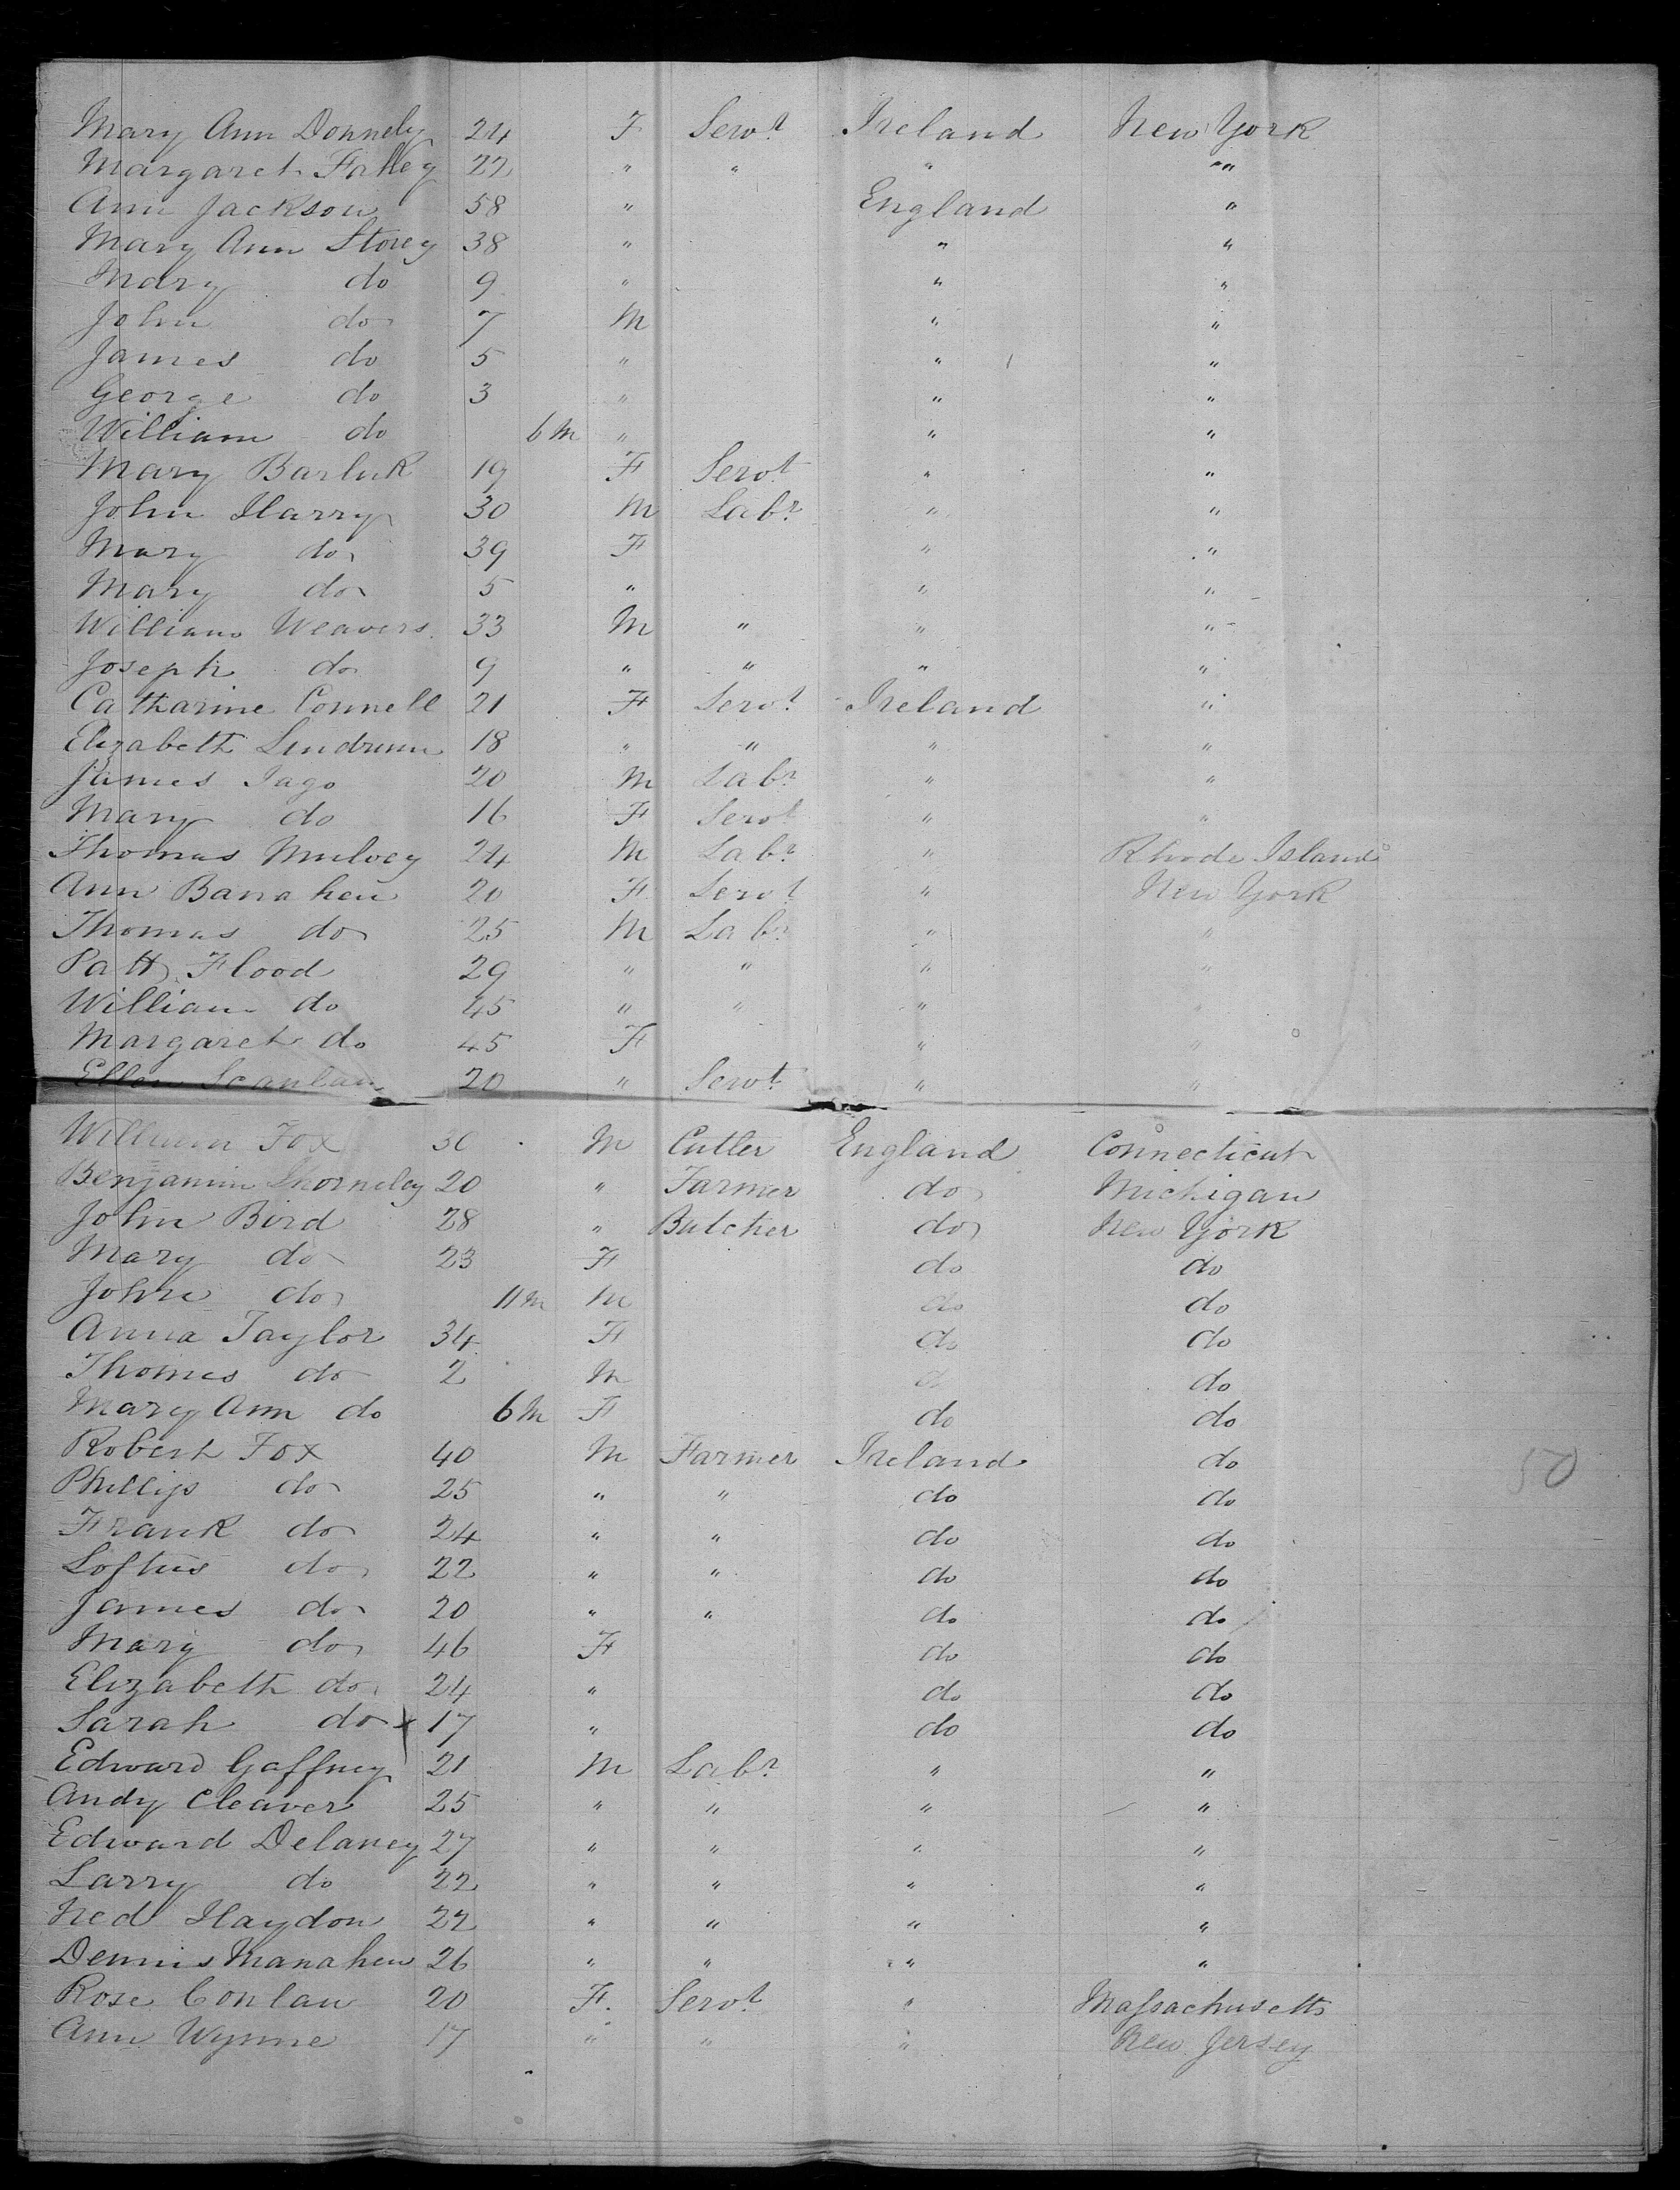 Mary Ann Donnely 24 F Servt Ireland New York
Margaret Falley 22 " " " ""
Ann Jackson 58 " England "
Mary Ann Storey 38 " " "
Mary do 9 " " "
John do 7 M " "
James do 5 " " "
George do 3 " " "
William do 6 M " " "
Mary Barluk 19 F Servt " "
John Harry 30 M Labr " "
Mary do 39 F " "
Mary do 5 " " "
William Weavers 33 M " " "
Joseph do 9 " " " "
Catharine Connell 21 F Servt Ireland "
Elizabeth Lindrum 18 " " " "
James Jago 20 M Labr " "
Mary do 16 F Servt " "
Thomas Mulvey 24 M Labr " Rhode Island
Ann Banahen 20 F Servt " New York
Thomas do 25 M Labr " "
Patt Flood 29 " " " "
William do 45 " " " "
Margaret do 45 F " "
Ellen Scanlan 20 " Servt " "
William Fox 30 M Cutler England Connecticut
Benjamin Thorneley 20 " Farmer do Michigan
John Bird 28 " Butcher do New York
Mary do 23 F do do
John do 11 M M do do
Anna Taylor 34 F do do
Thomas do 2 M do do
Mary Ann do 6 M F do do
Robert Fox 40 M Farmer Ireland do
Phillip do 25 " " do do
Frank do 24 " " do do
Loftus do 22 " " do do
James do 20 " " do do
Mary do 46 F do do
Elizabeth do 24 " do do
Sarah do x 17 " do do
Edward Gaffney 21 M Labr " "
Andy Cleaver 25 " " " "
Edward Delaney 27 " " " "
Larry do 22 " " " "
Ned Haydon 22 " " " "
Dennis Manahen 26 " " " "
Rose Conlan 20 F. Servt " Massachusetts
Ann Wynne 17 " " " New Jersey
50